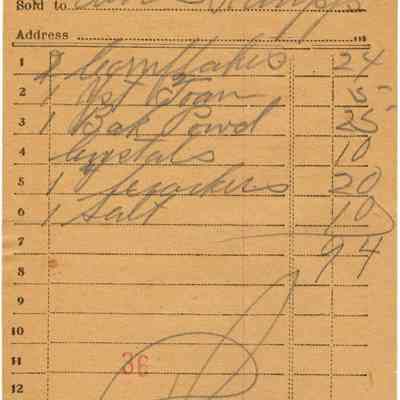 Sold to
Address
1 2 Cornflakes 24
2 1 Pst Toan 5
3 1 Bak Powd 25
4 Crystals 10
5 1 Crackers 20
6 1 Salt 10
7 94
8
9
10
11 36
12